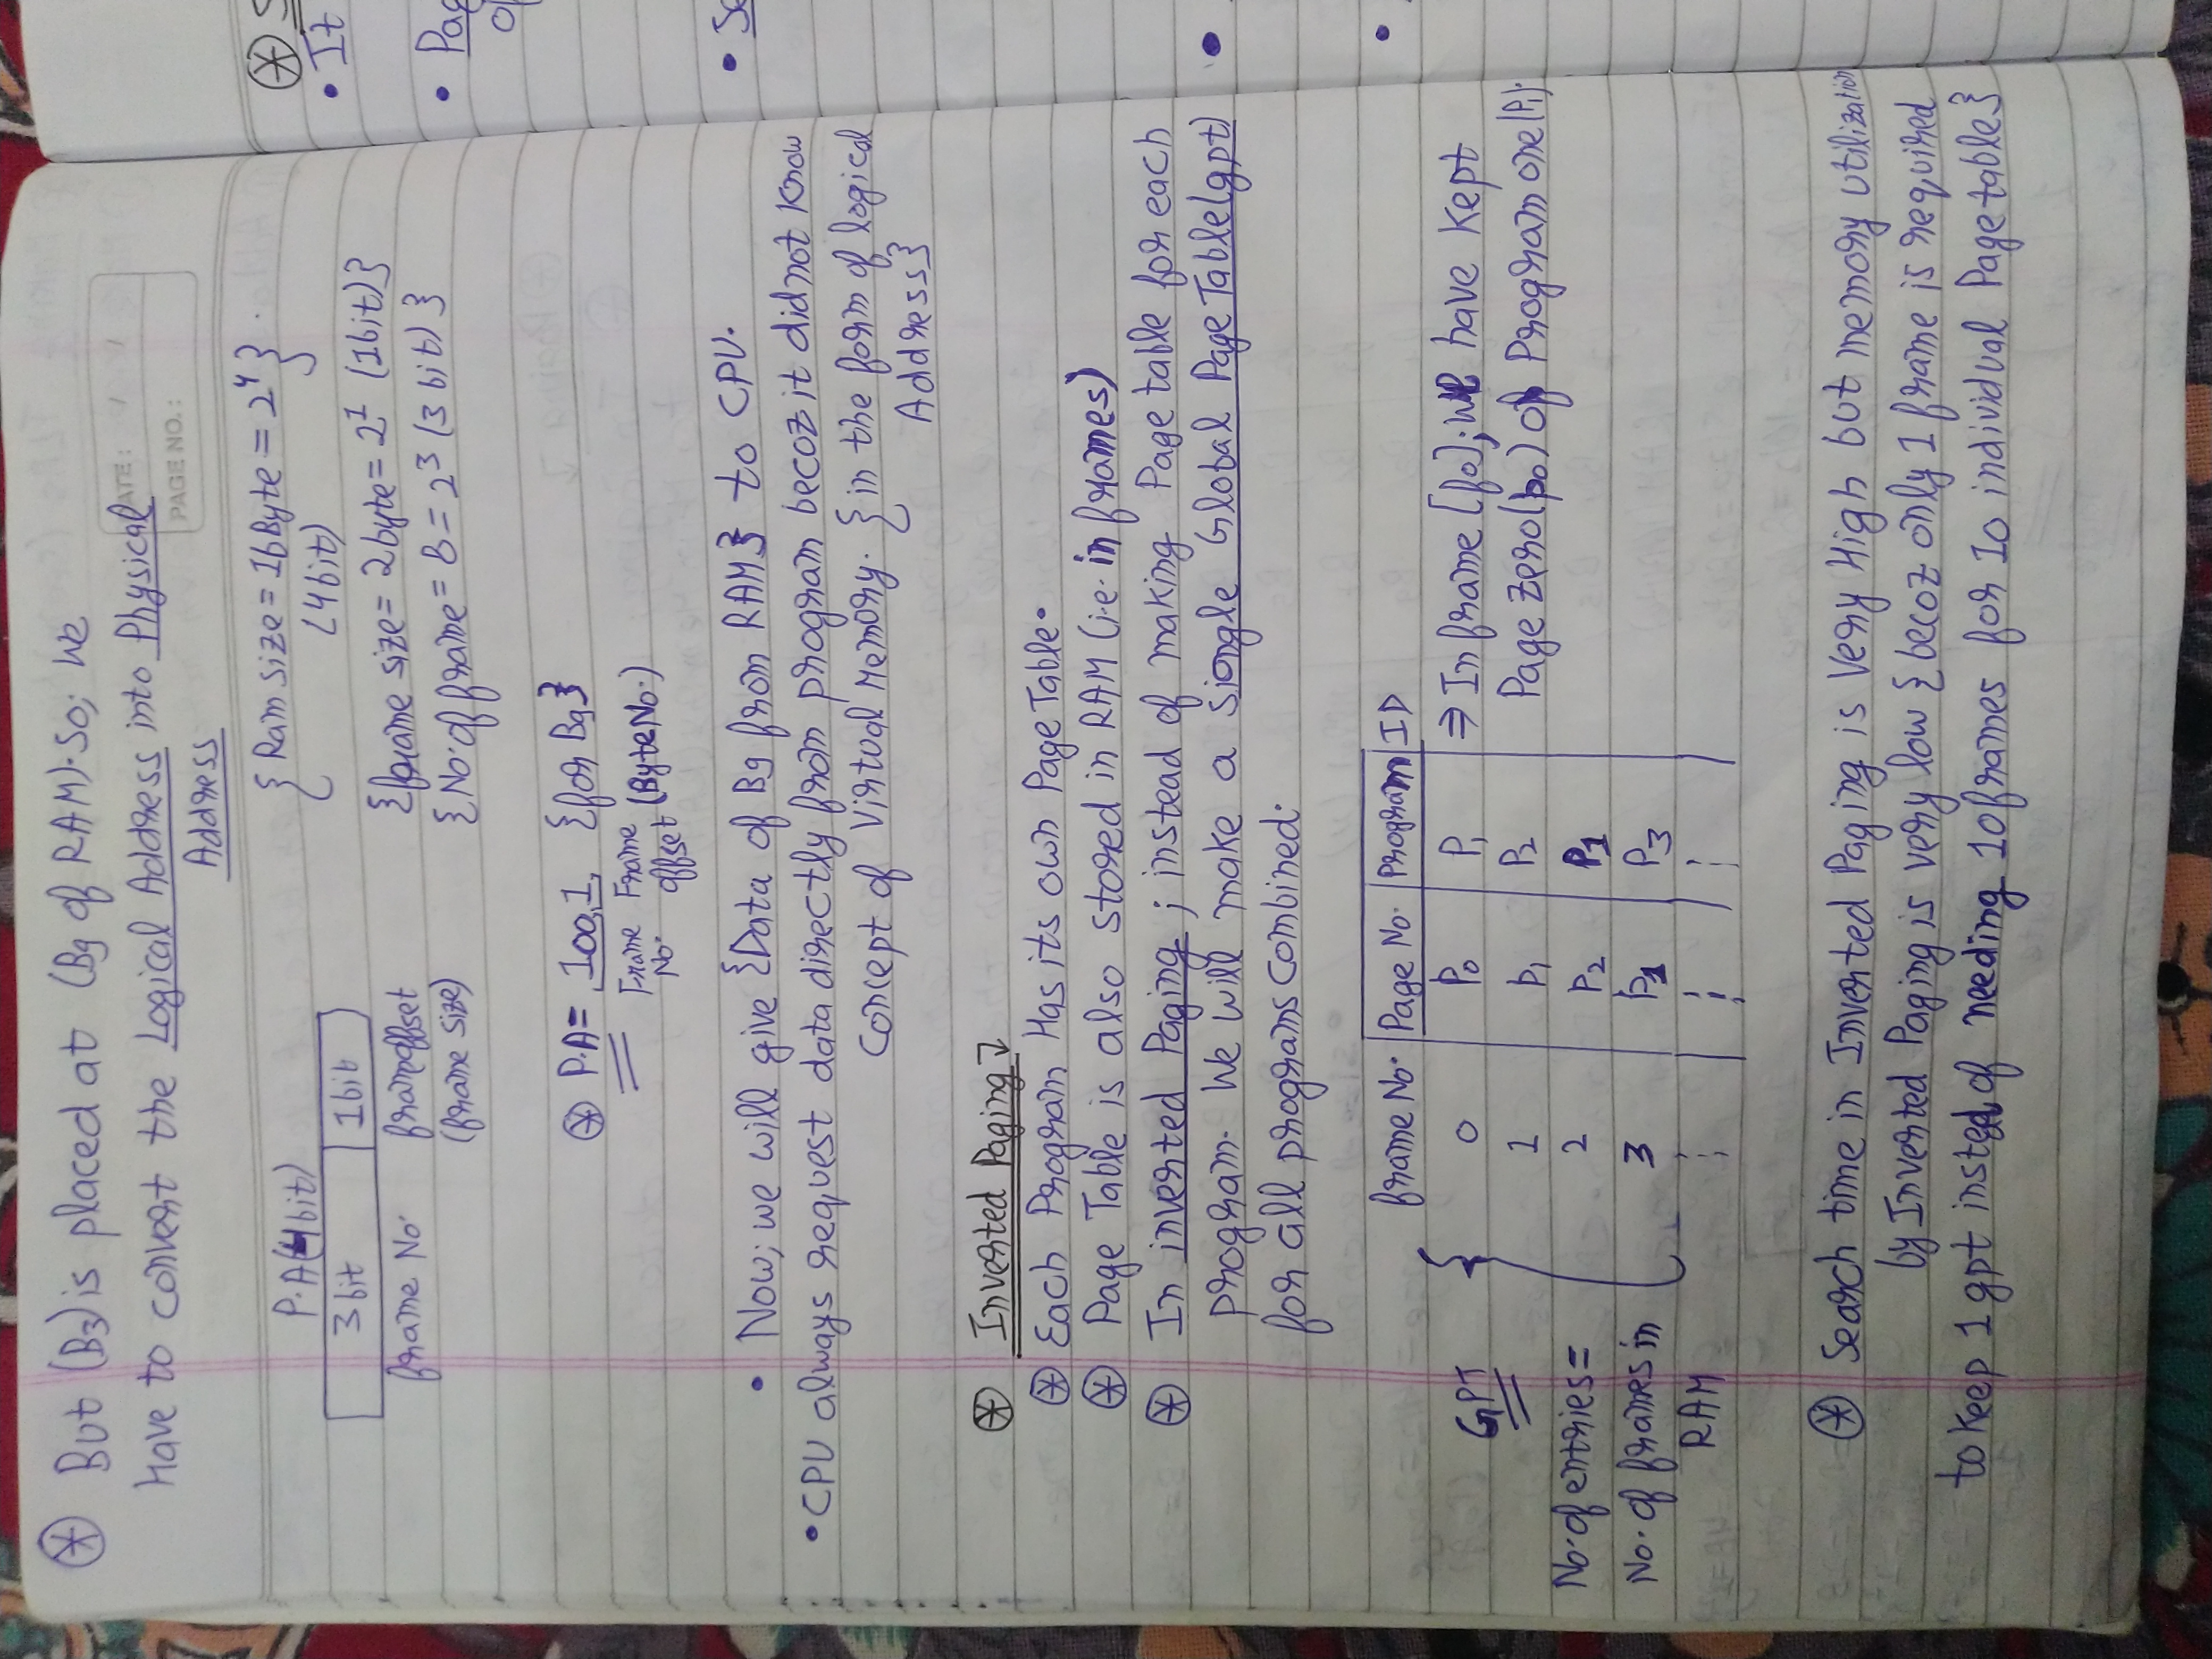 ⊛ But (B3) is placed at (B9 of RAM). So; We
DATE: / /
Have to convert the Logical Address into Physical
PAGE NO.:
Address
P.A(4bit)
{Ram size = 16Byte = 2^4}
(4bit)
3bit | 1bit
frame No. frameoffset
(frame size)
{frame size = 2byte = 2^1 (1bit)}
{No. of frame = 8 = 2^3 (3 bit)}
⊛ P.A = 100,1, {for B9}
Frame No. Frame offset (Byte No.)
• Now; we will give {Data of B9 from RAM} to CPU.
• CPU always request data directly from program becoz it did not know
concept of Virtual Memory. {in the form of logical
Address}
⊛ Inverted Paging ↴
⊛ Each Program Has its own Page Table.
⊛ Page Table is also stored in RAM (i.e. in frames)
⊛ In inverted Paging ; instead of making Page table for each
program. We will make a siongle Global Page Table(gpt)
for all programs combined.
frame No. | Page No. | Program ID
GPT
0 | P0 | P1 ⇒ In frame [f0]; We have kept
1 | P1 | P2 Page zero(p0) of Program one(P1).
No. of entries =
2 | P2 | P1
No. of frames in
3 | P1 | P3
RAM
⊛ Search time in Inverted Paging is Very High but memory utilization
by Inverted Paging is very low {becoz only 1 frame is required
to keep 1 gpt insted of needing 10 frames for 10 individual Page table}
⊛ S
• It
• Pag
of
• Se